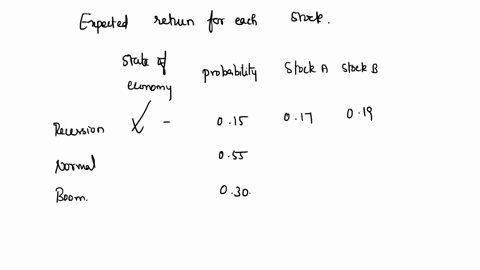 Expected return for each stock.
State of economy probability Stock A Stock B
Recession - 0.15 0.17 0.19
Normal 0.55
Boom. 0.30